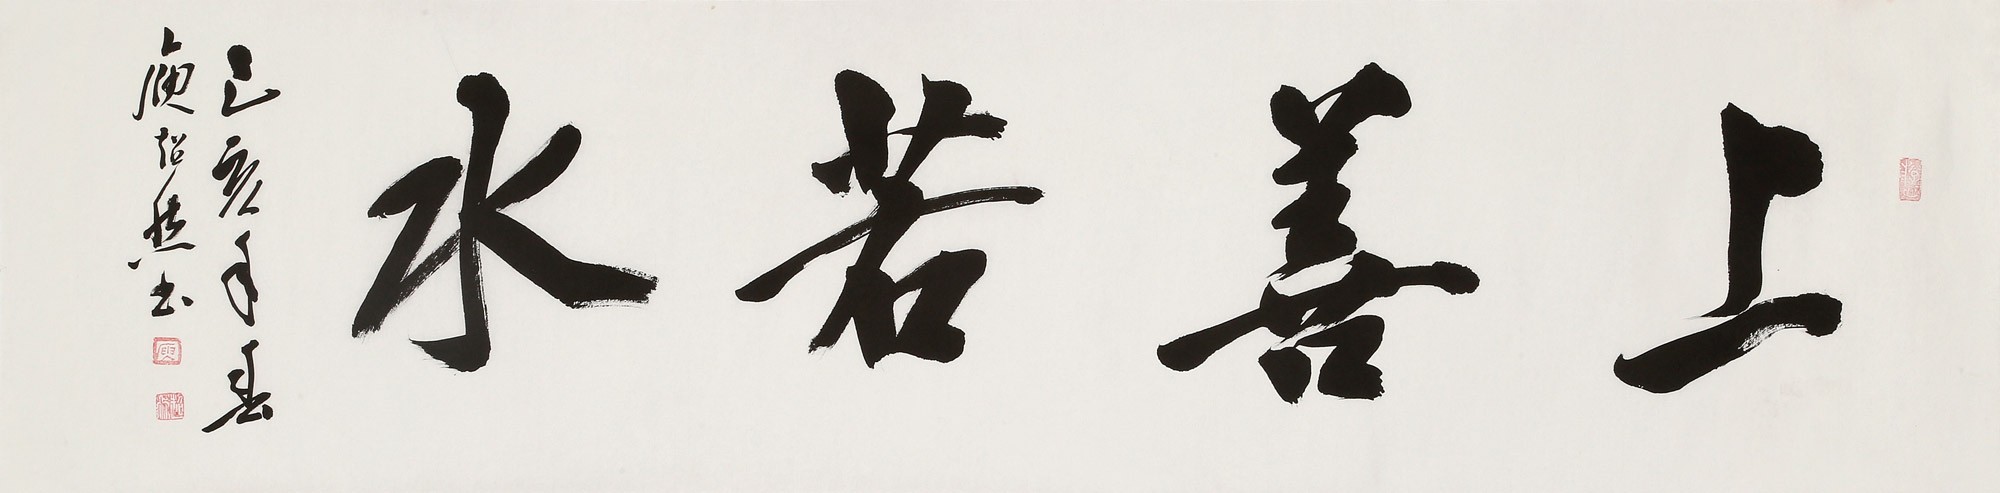 上善若水
己亥年春
庾超然书